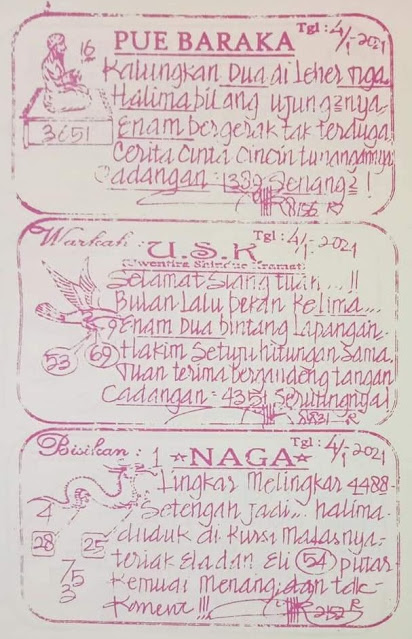 PUE BARAKA
Tgl : 4/1-2021
16
3651
Kalungkan Dua di Leher nga
Halima bilang ujungnya
Enam bergerak tak terduga
Cerita Cinta Cincin tunangannya
Cadangan = 1389 Senang2 !
Warkah :
U.S.K
Tgl : 4/1-2021
53 69
Selamat Siang tuan...!!
Bulan Lalu pekan kelima...
Enam Dua bintang Lapangan
Hakim Setuju hitungan Sama
Tuan terima bergandeng tangan
Cadangan = 4351
Bisikan : 1
NAGA
Tgl : 4/1-2021
4
28 25
75
3
Lingkar Melingkar 4488
Setengah jadi... halima
duduk di Kursi malasnya
teriak Eladan Eli 54 putar
Kemudi Menang dan tdk
Koment !!!